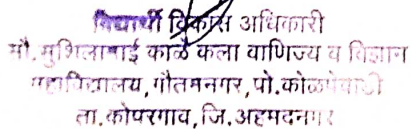 विद्यार्थी विकास अधिकारी
सौ.सुशिलाबाई काळे कला वाणिज्य व विज्ञान
महाविद्यालय,गौतमनगर,पो.कोळपेवाडी
ता.कोपरगाव,जि.अहमदनगर